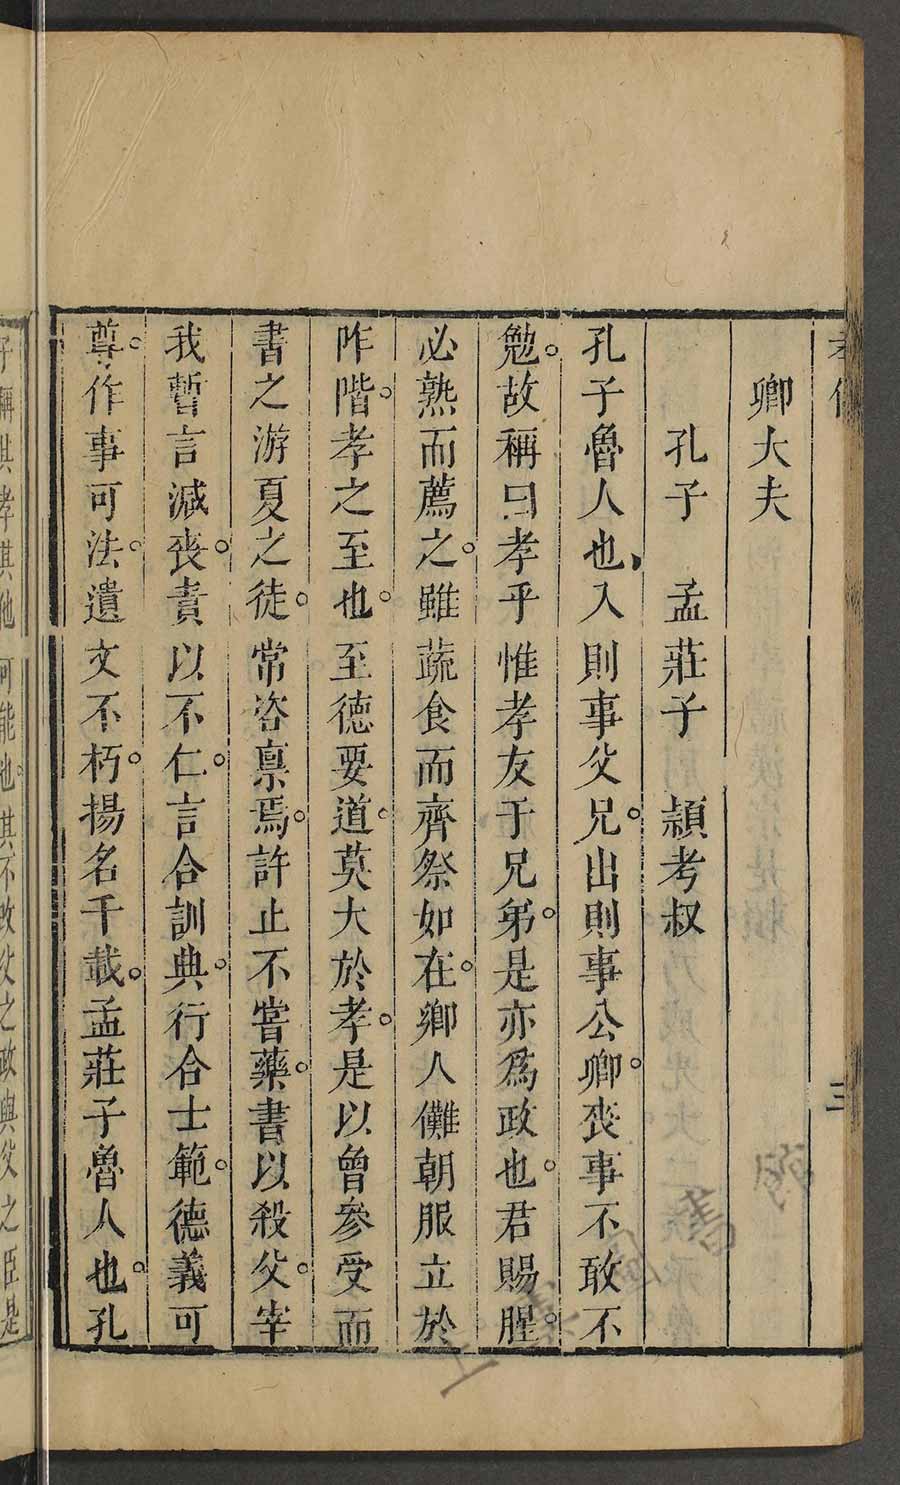 卿大夫
孔子　孟莊子　潁考叔
孔子魯人也入則事父兄出則事公卿喪事不敢不
勉故稱曰孝乎惟孝友于兄弟是亦爲政也君賜腥
必熟而薦之雖蔬食而齊祭如在鄉人儺朝服立於
阼階孝之至也至德要道莫大於孝是以曾參受而
書之游夏之徒常咨稟焉許止不嘗藥書以殺父宰
我暫言減喪責以不仁言合訓典行合士範德義可
尊作事可法遺文不朽揚名千載孟莊子魯人也孔
子稱其孝其他可能也其不改父之政與父之臣是